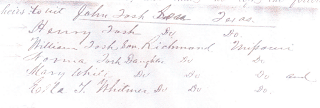 heirs to wit John Tosh Son Texas.
Henry Tosh Do Do.
William Tosh Son Richmond Missouri
Norma Tosh Daughter Do Do
Mary White Do Do Do and
Rella T. Whitmer Do Do Do.